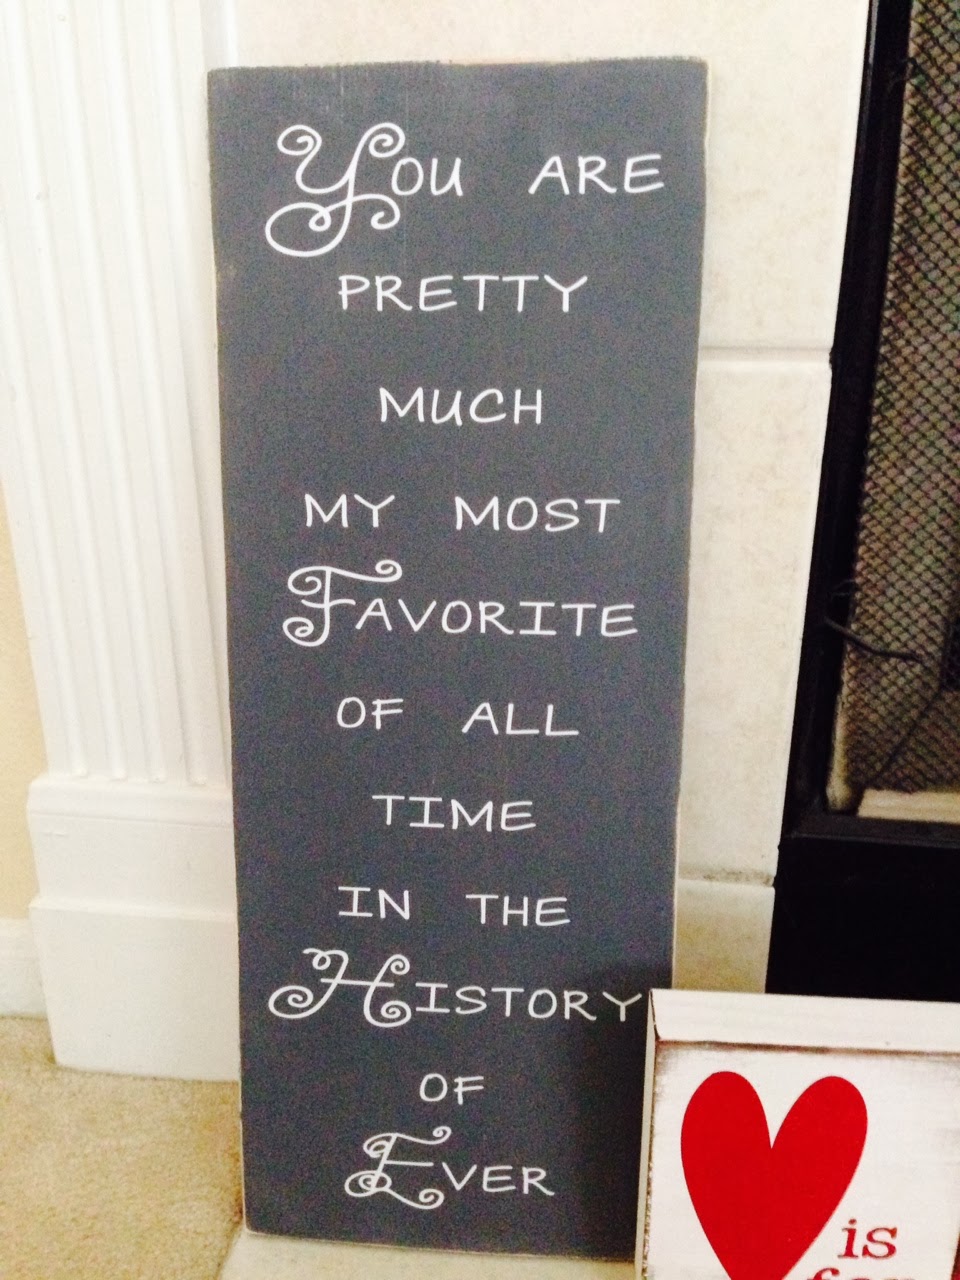 You are
pretty
much
my most
Favorite
of all
time
in the
History
of
Ever
is